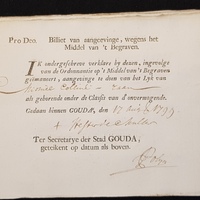 Pro Deo. Billet van aangevinge, wegens het
Middel van 't Begraven.
IK ondergeschreve verklare by dezen, ingevolge
van de Ordonnantie op 't Middel van 't Begraven
geëmaneert, aangevinge te doen van het Lyk van
als gehorende onder de Classis van d'onvermogende.
Gedaan binnen GOUDA, den 17
Ter Secretarye der Stad GOUDA,
geteikent op datum als boven.